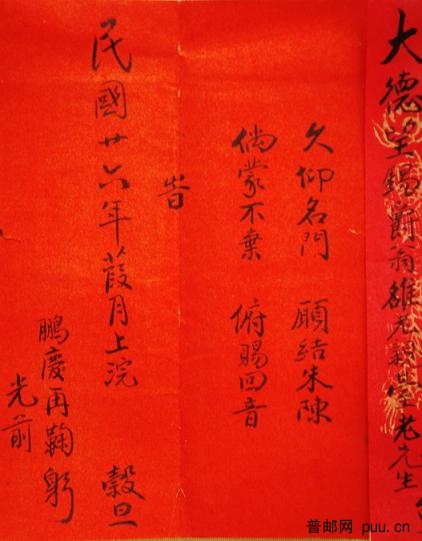 大德望錫爵翁雄老親臺老先生
久仰名門 願結朱陳
倘蒙不棄 俯賜回音
旹
民國廿六年葭月上浣 榖旦
鵬慶再鞠躬
光前
普邮网 puu.cn